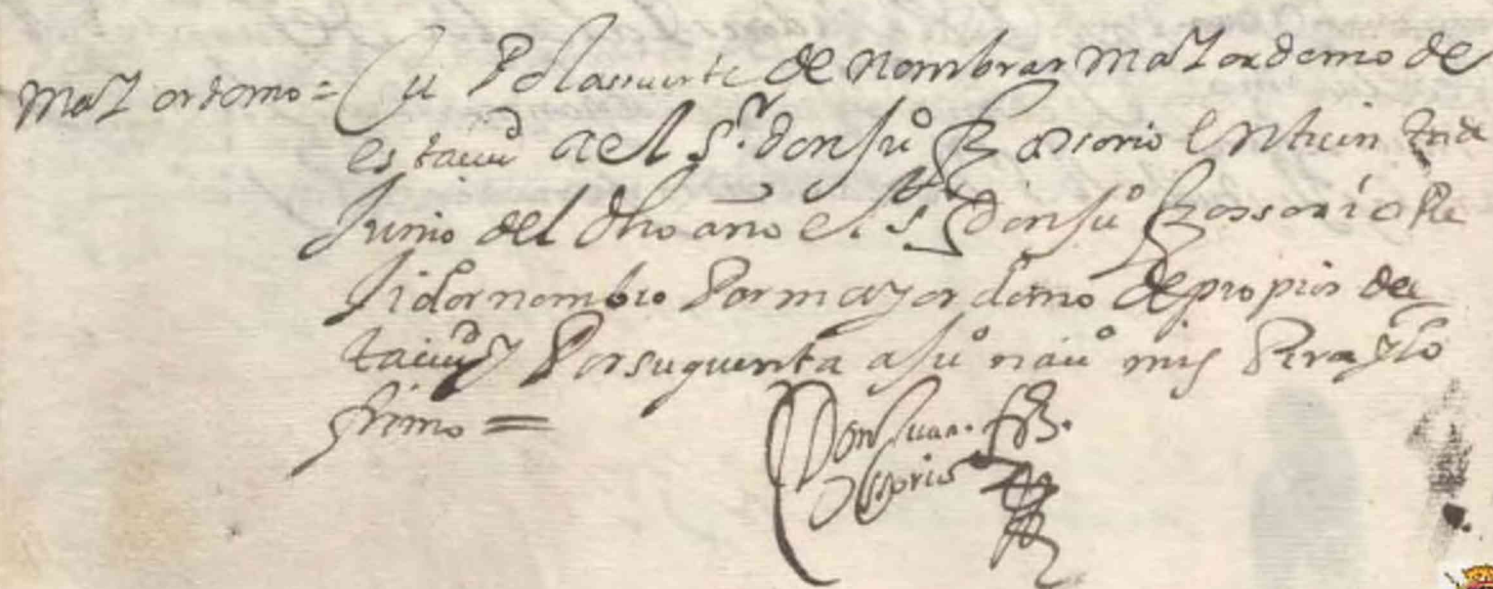 mayordomo = Cu P o la suerte de nombrar mayordomo de
esta ciud a el Sr. don Ju° Frz ossorio en Vein
Junio del dho año el Sr Don Ju° Frz ossorio Re
jidor nombro Por mayordomo de propios de
ta ciud y Por su quenta a Ju° y lo
firmo =
Don Juan. Frz.
Ossorio